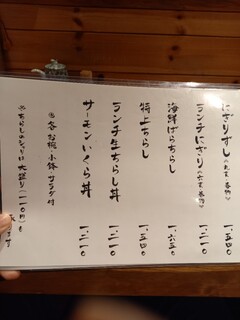 にぎりずし
一、五四〇
ランチにぎり
一、二一〇
海鮮ばらちらし
一、六五〇
特上ちらし
一、五四〇
ランチ生ちらし丼
一、二一〇
サーモンいくら丼
一、二一〇
※各お椀、小鉢、サラダ付
※ちらしのシャリ大盛り(一一〇円)も